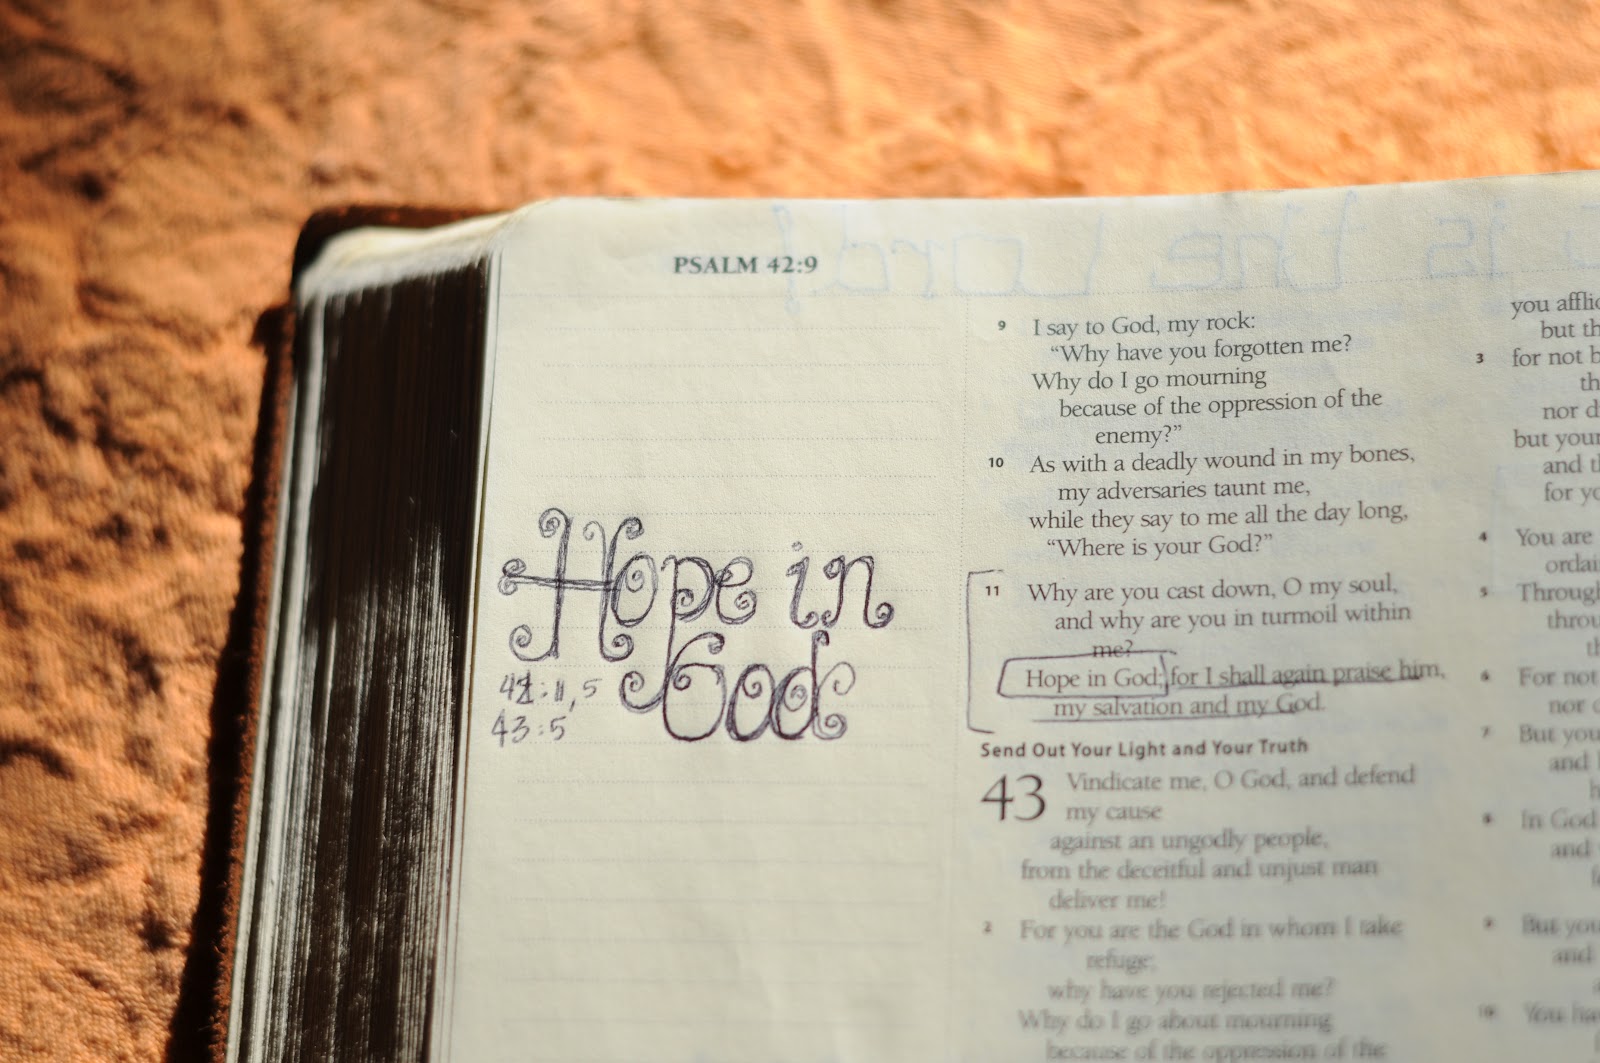 PSALM 42:9
Hope in
God
42:11, 5
43:5
9 I say to God, my rock:
“Why have you forgotten me?
Why do I go mourning
because of the oppression of the
enemy?”
10 As with a deadly wound in my bones,
my adversaries taunt me,
while they say to me all the day long,
“Where is your God?”
11 Why are you cast down, O my soul,
and why are you in turmoil within
me?
Hope in God; for I shall again praise him,
my salvation and my God.
Send Out Your Light and Your Truth
43 Vindicate me, O God, and defend
my cause
against an ungodly people,
from the deceitful and unjust man
deliver me!
2 For you are the God in whom I take
refuge;
why have you rejected me?
Why do I go about mourning
because of the oppression of the
you
but
3 for not
nor
but your
and
for
4 You are
5 Through
6 For not
nor
7 But you
and
8 In God
and
9 But you
and
10 You
is the Lord!